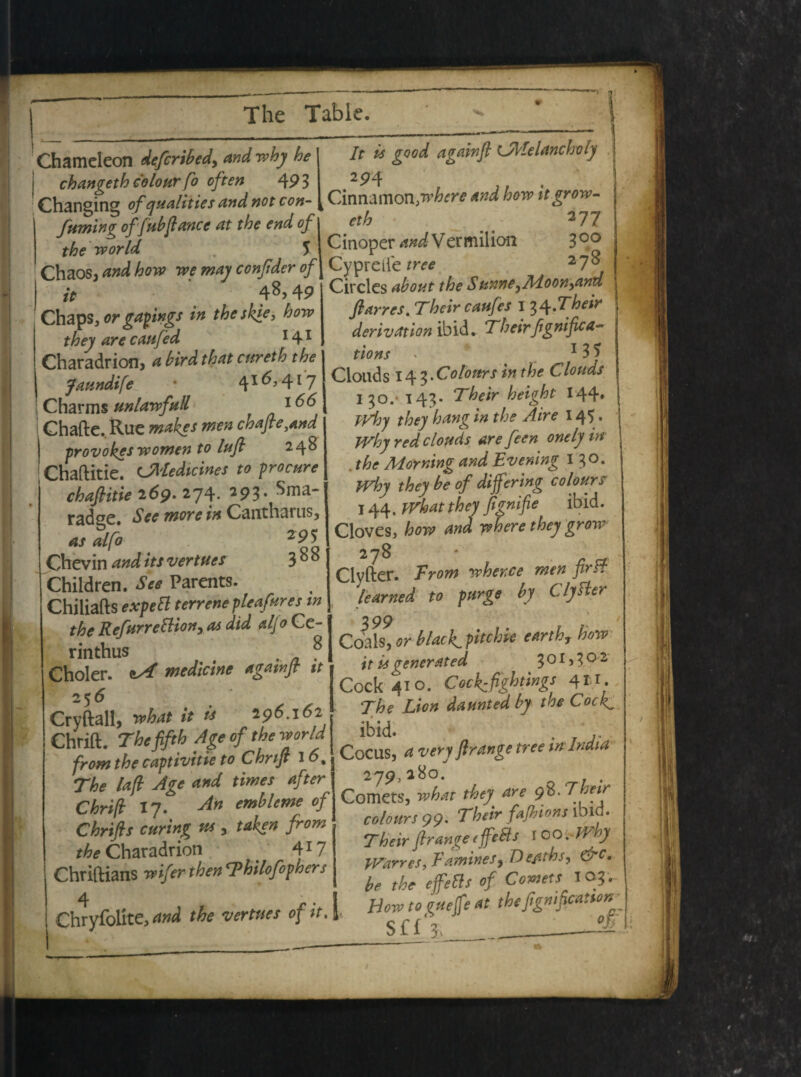 The Table.
Chameleon deſcribed, and why he
changeth colour ſo often 493
Changing of qualities and not con-
ſuming of ſubſtance at the end of
the world 5
Chaos, and how we may conſider of
it 48, 49
Chaps, or gapings in the skie, how
they are cauſed 141
Charadrion, a bird that cureth the
Jaundiſe 416, 417
Charms unlawfull 166
Chaſte. Rue makes men chaſte, and
provokes women to luſt 248
Chaſtitie. Medicines to procure
chaſtitie 269. 274. 293. Sma-
radge. See more in Cantharus,
as alſo 295
Chevin and its vertues 388
Children. See Parents.
Chiliaſts expect terrene pleaſures in
the Reſurrection, as did alſo Ce-
rinthus 8
Choler. A medicine againſt it
256
Cryſtall, what it is 296. 162
Chriſt. The fifth Age of the world
from the captivitie to Chriſt 16.
The laſt Age and times after
Chriſt 17. An embleme of
Chriſts curing us, taken from
the Charadrion 417
Chriſtians wiſer then Philoſophers
4
Chryſolite, and the vertues of it.
It is good againſt Melancholy
294
Cinnamon, where and how it grow-
eth 277
Cinoper and Vermilion 300
Cypreſſe tree 278
Circles about the Sunne, Moon, and
ſtarres. Their cauſes 134. Their
derivation ibid. Their ſignifica-
tions 135
Clouds 143. Colours in the Clouds
130. 143. Their height 144.
Why they hang in the Aire 145.
Why red clouds are ſeen onely in
the Morning and Evening 130.
Why they be of differing colours
144. What they ſignifie ibid.
Cloves, how and where they grow
278
Clyſter. From whence men firſt
learned to purge by Clyſter
399
Coals, or black pitchie earth, how
it is generated 301, 302
Cock 410. Cock-fightings 411.
The Lion daunted by the Cock
ibid.
Cocus, a very ſtrange tree in India
279, 280.
Comets, what they are 98. Their
colours 99. Their faſhions ibid.
Their ſtrange effects 100. Why
Warres, Famines, Deaths, &c.
be the effects of Comets 103.
How to gueſſe at the ſignification
Sſſ 3 of